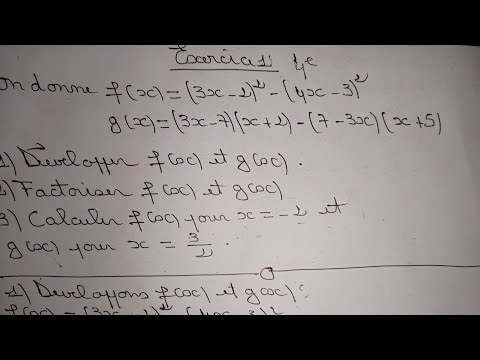 Exercice 4e
On donne f(x) = (3x-2)² - (4x-3)²
g(x) = (3x-7)(x+2) - (7-3x)(x+5)
1) Développer f(x) et g(x).
2) Factoriser f(x) et g(x)
3) Calculer f(x) pour x = -2 et
g(x) pour x = 3/2.
1) Développons f(x) et g(x):
f(x) = (3x-2)² - (4x-3)²